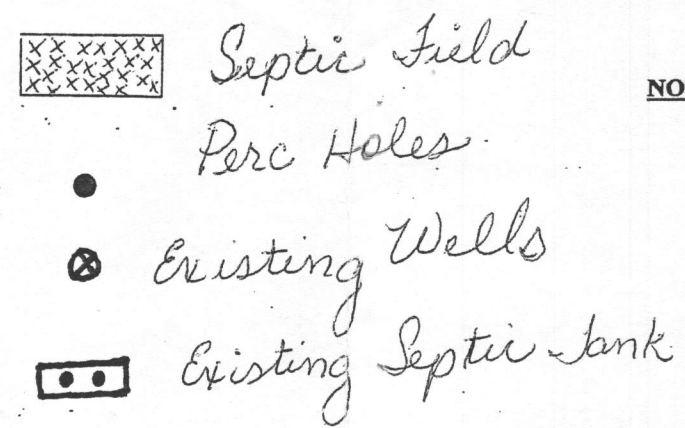 Septic Field
NO
Perc Holes
Existing Wells
Existing Septic Tank